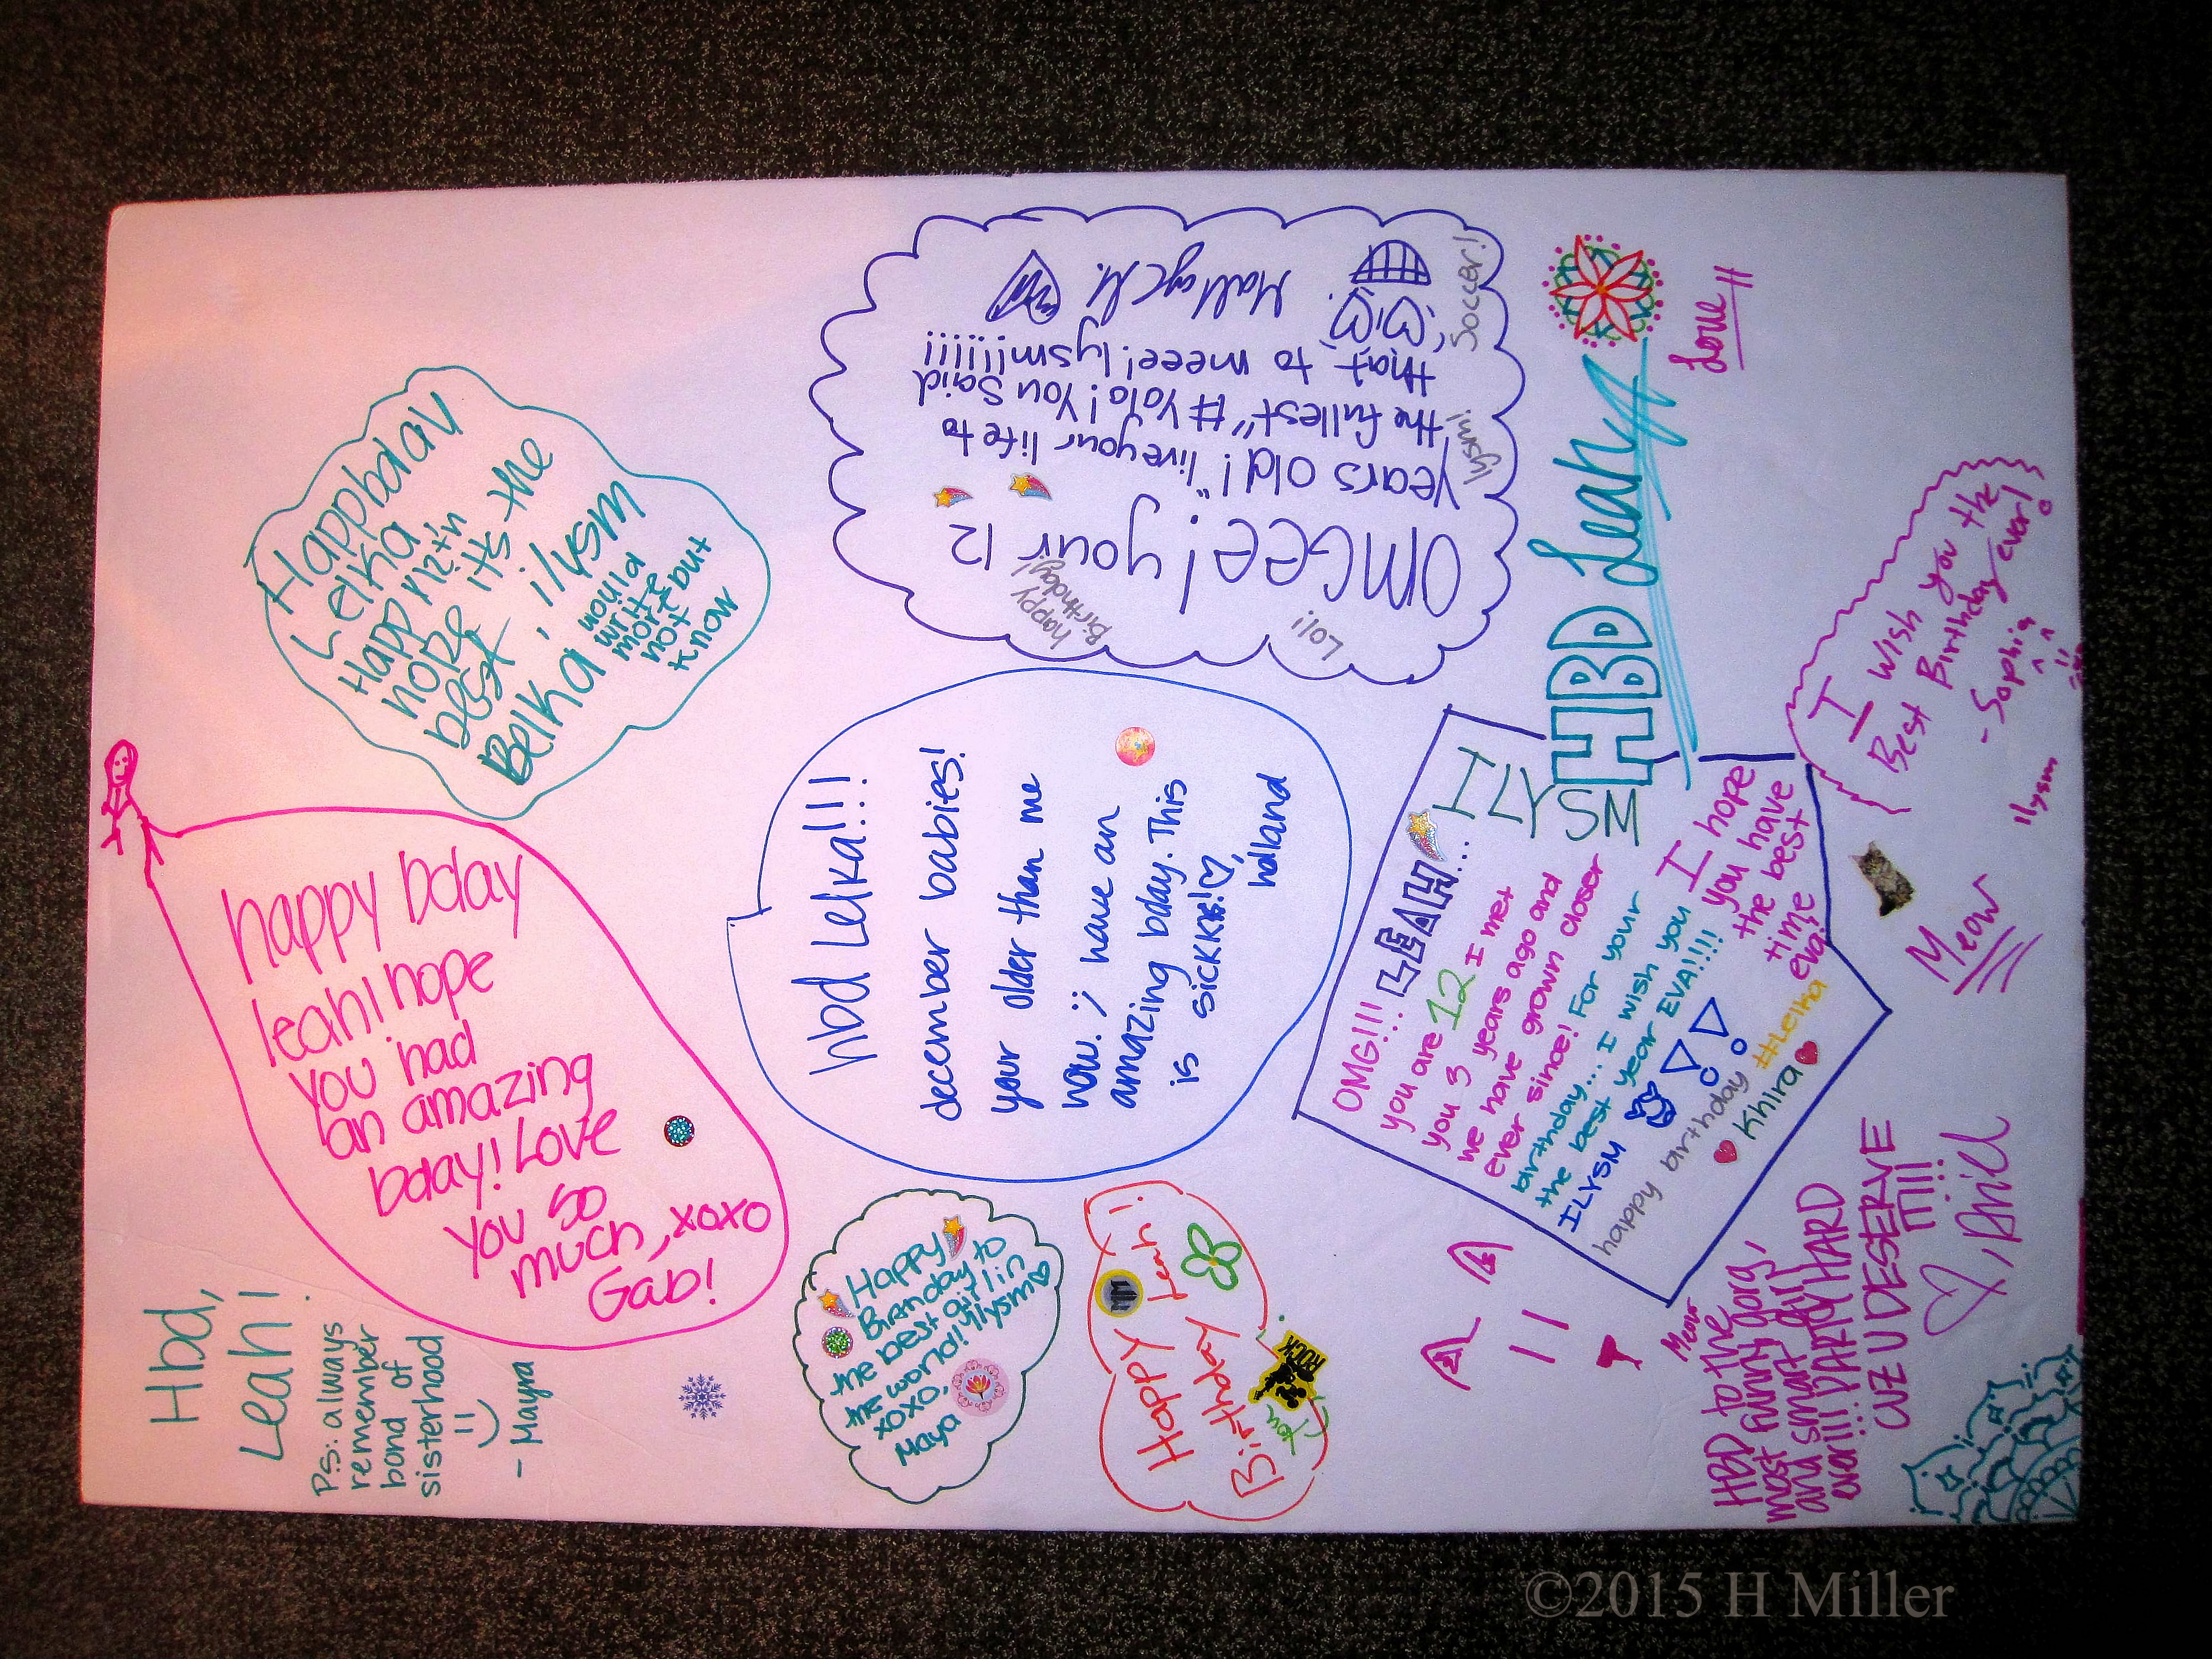 Happbday
Lelka
Happy 12th
hope its the
best, ilysm
Belka
would
write
more but
not
know
happy Bday
leah I hope
you had
an amazing
bday! Love
you so
much, xoxo
Gab!
Hbd,
Leah!
P.S: always
remember
bond of
sisterhood
- Mayra
OMGee! your 12
years old! "live your life to
the fullest" # Yolo! You said
that to meee! lysm!!!!!!
happy
Birthday!
Lol!
lysm!
Soccer!
hbd Lelka!!!
december babies!
your older than me
now. ;) have an
amazing bday. This
is sickkk!
holland
Happy
Birthday to
the best girl in
the world! Ilysm
xoxo,
Maya
Happy Leah!
Birthday
ROCK
HBD Leah
Love H
ILYSM
OMG!!! LEAH...
you are 12 I met
you 3 years ago and
we have grown closer
ever since! For your
birthday... I wish you
the best year EVA!!!!
ILYSM
happy birthday #Lelka
Khira
I hope
you have
the best
time
eva!
I wish you the
Best Birthday ever!
- Sophia
ilysm
Meow
Meow
HBD to the gorg,
most funny,
and smart gurl
ever!!! PARTY HARD
CUZ U DESERVE
IT!!!